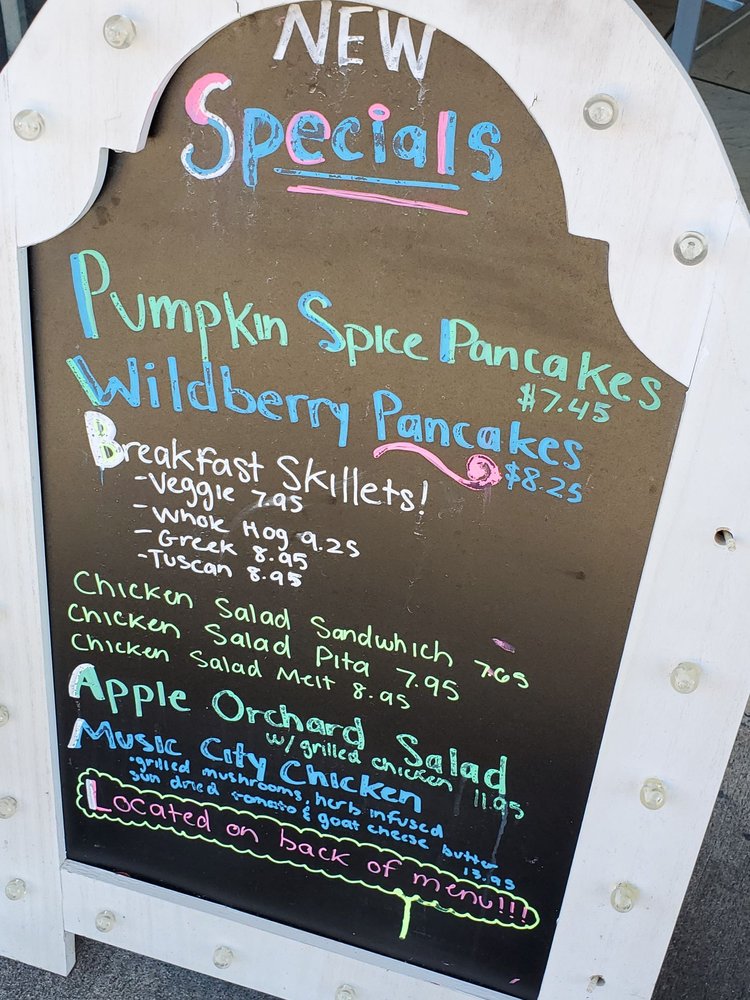 NEW
Specials
Pumpkin Spice Pancakes
$7.45
Wildberry Pancakes
$8.25
Breakfast Skillets!
-Veggie 7.95
-Whole Hog 9.25
-Greek 8.95
-Tuscan 8.95
Chicken Salad Sandwhich 7.65
Chicken Salad Pita 7.95
Chicken Salad Melt 8.95
Apple Orchard Salad
w/ grilled chicken 11.95
Music City Chicken
•grilled mushrooms, herb infused
sun dried tomato & goat cheese butter
13.95
Located on back of menu!!!